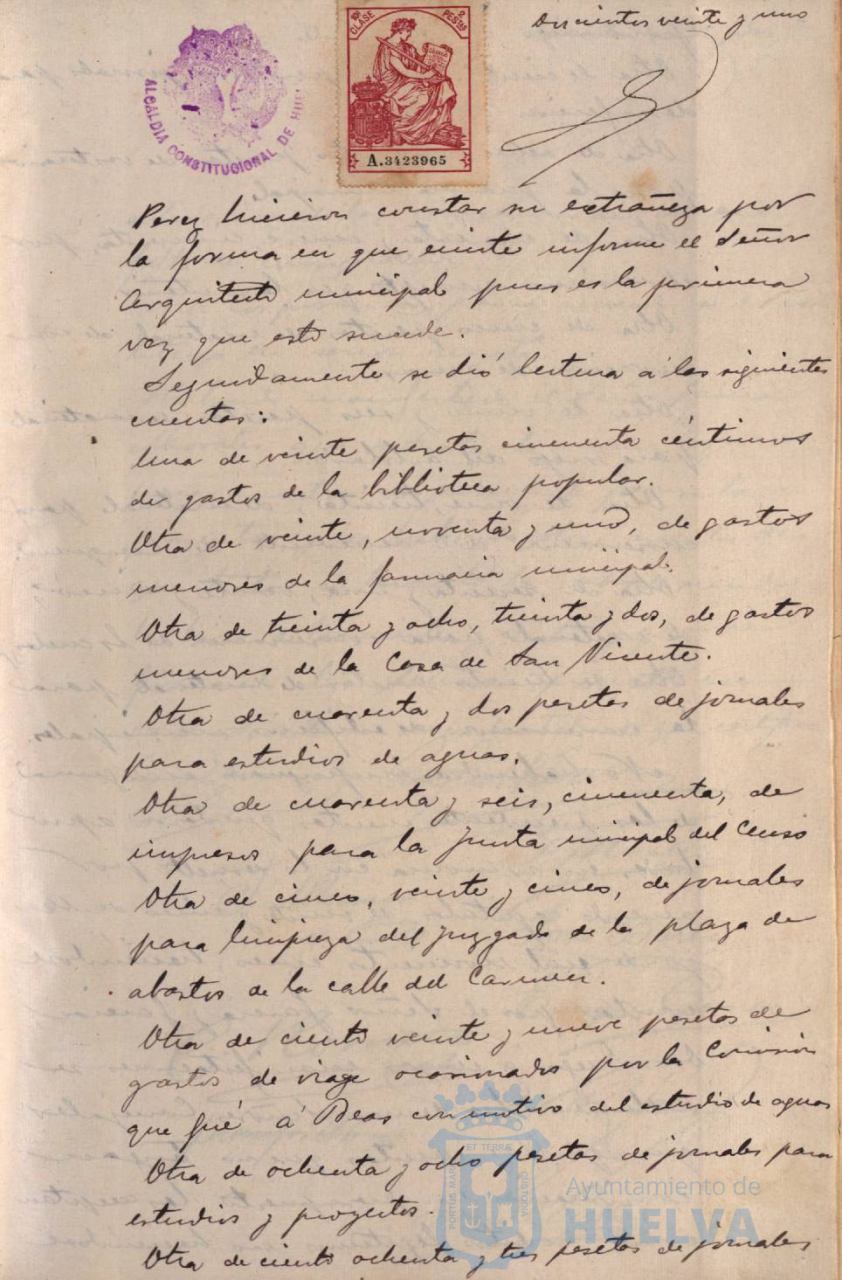 Doscientos veinte y uno
10ª CLASE 2 PESTAS
A.3423965
ALCALDIA CONSTITUCIONAL DE HUE
Perez hicieron constar su estrañeza por
la forma en que emite informe el Señor
Arquitecto municipal pues es la primera
vez que esto sucede.
Seguidamente se dió lectura á las siguientes
cuentas:
Una de veinte pesetas cincuenta céntimos
de gastos de la biblioteca popular.
Otra de veinte, noventa y uno, de gastos
menores de la farmacia municipal.
Otra de treinta y ocho, treinta y dos, de gastos
menores de la Casa de San Vicente.
Otra de cuarenta y dos pesetas de jornales
para estudios de aguas.
Otra de cuarenta y seis, cincuenta, de
impresos para la Junta municipal del Censo
Otra de cinco, veinte y cinco, de jornales
para limpieza del juzgado de la plaza de
abastos de la calle del Carmen.
Otra de ciento veinte y nueve pesetas de
gastos de viage ocasionados por la Comisión
que fué á Beas con motivo del estudio de aguas
Otra de ochenta y ocho pesetas de jornales para
estudios y proyectos.
Otra de ciento ochenta y tres pesetas de jornales
PORTUS MARIS ET TERRAE CUSTODIA
Ayuntamiento de
HUELVA